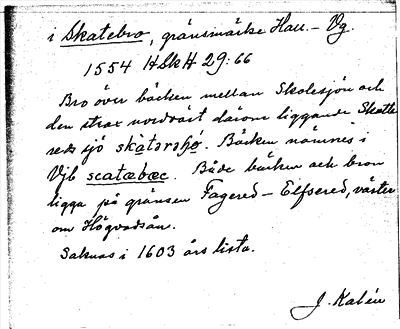 i Skatebro, gränsmärke Hall. – Vg.
1554 HSkH 29:66
Bro över bäcken mellan Skolesjön och
den strax nordväst därom liggande Skatte
reds sjö skàtarshø. Bäcken nämnes i
Vjb scatæbæc. Både bäcken och bron
ligga på gränsen Fagered – Elfsered, väster
om Högvadsån.
Saknas i 1603 års lista.
J. Kalén